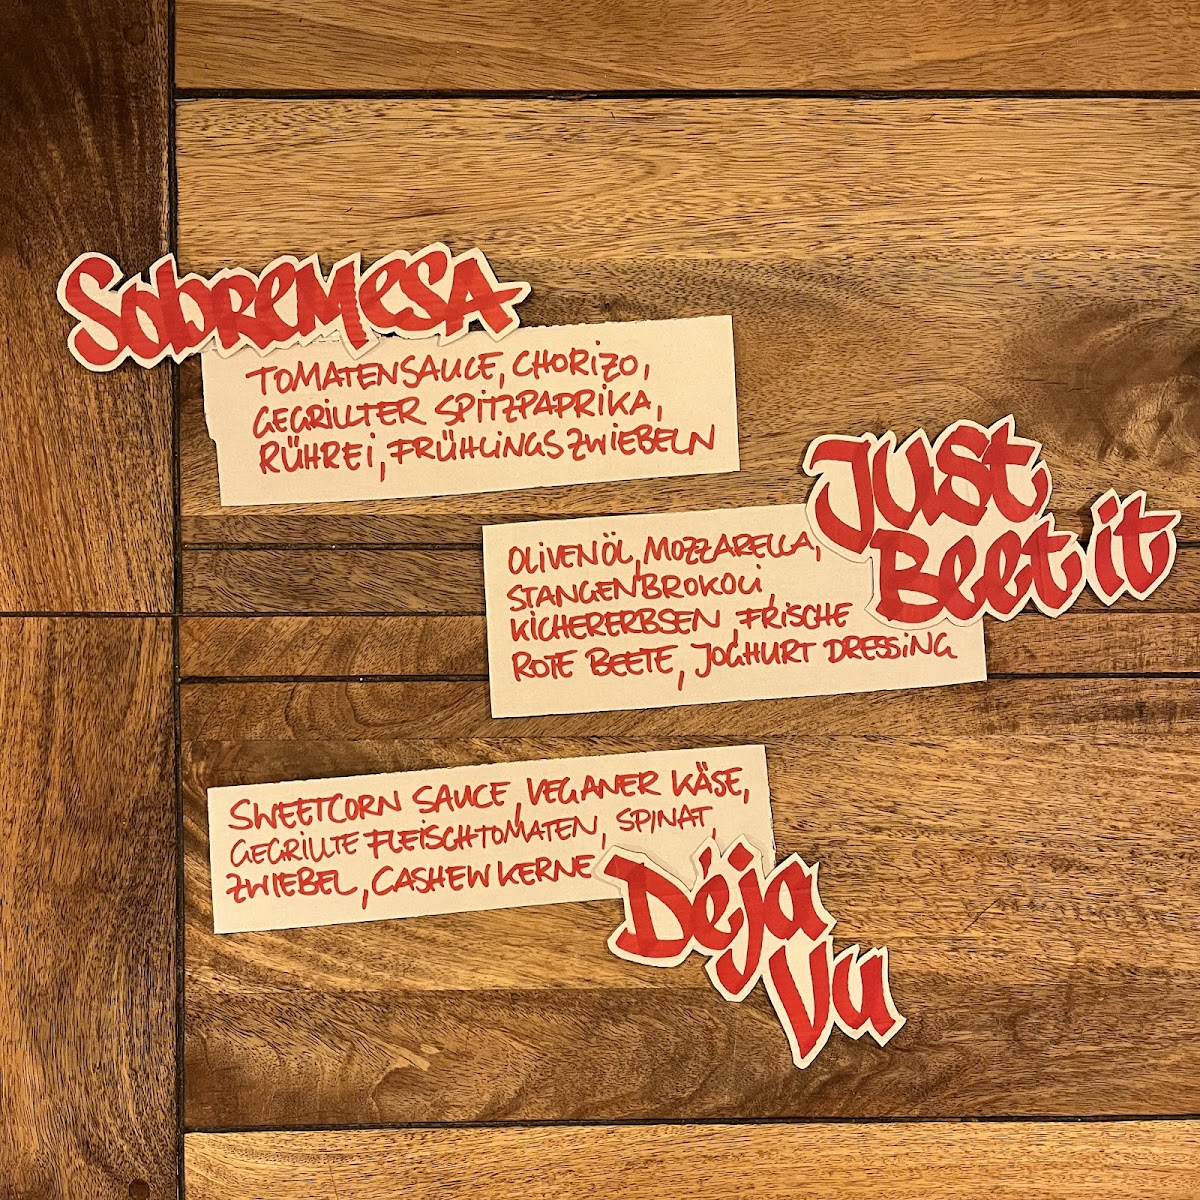 Sobremesa
TOMATENSAUCE, CHORIZO,
GEGRILLTER SPITZPAPRIKA,
RÜHREI, FRÜHLINGSZWIEBELN
Just
Beet it
OLIVENÖL, MOZZARELLA,
STANGENBROKOLI,
KICHERERBSEN, FRISCHE
ROTE BEETE, JOGHURT DRESSING
SWEETCORN SAUCE, VEGANER KÄSE,
GEGRILLTE FLEISCHTOMATEN, SPINAT,
ZWIEBEL, CASHEWKERNE
Déja
Vu